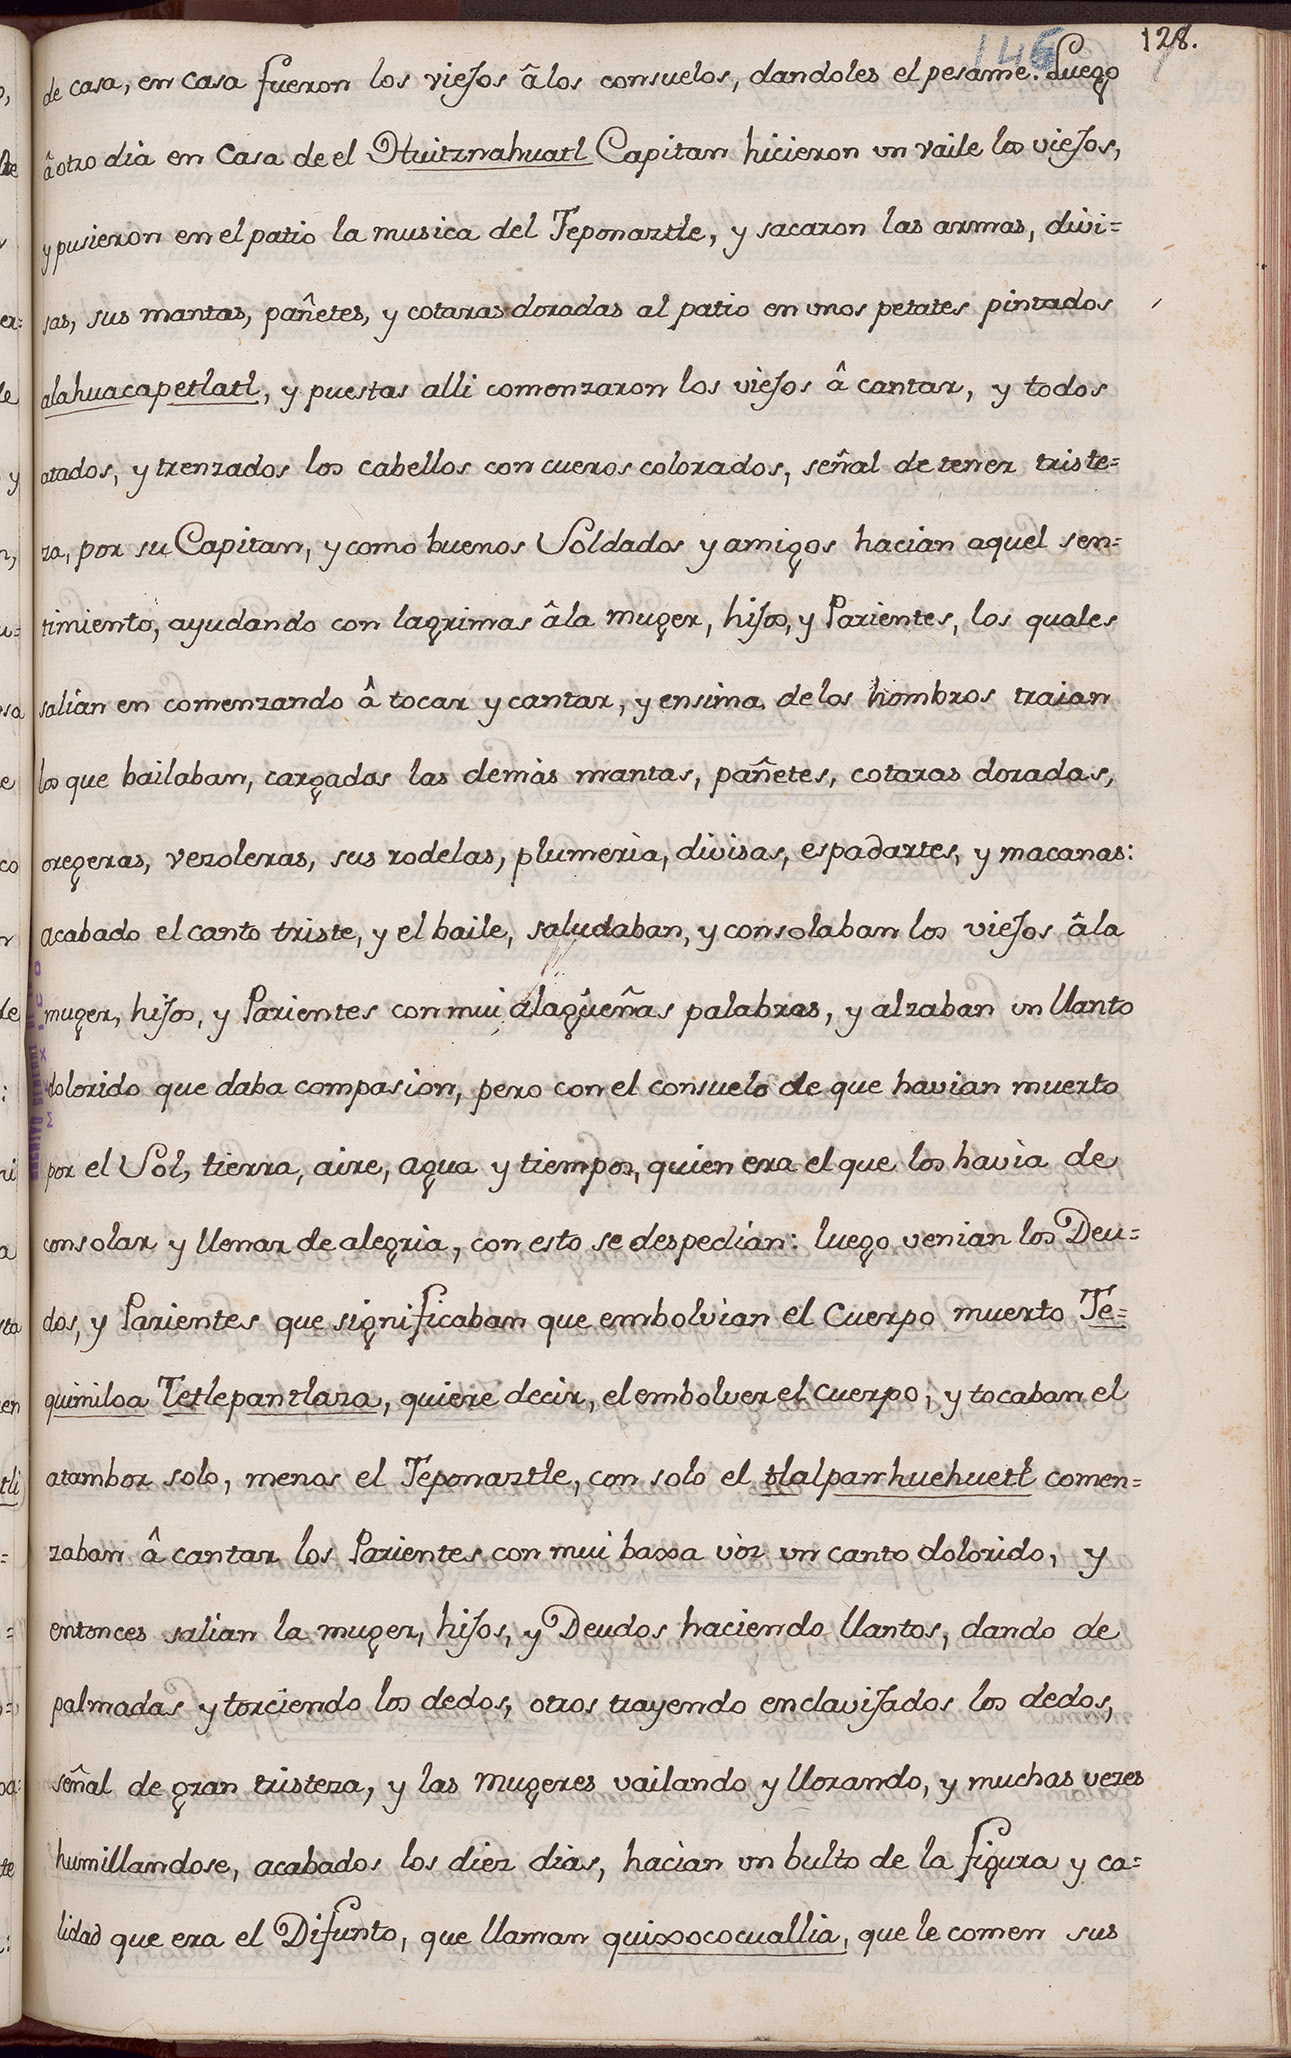 146 128.
de casa, en casa fueron los viejos âlos consuelos, dandoles el pesame. Luego
â otro dia en Casa de el Huitznahuatl Capitan hicieron un vaile los viejos,
y pusieron en el patio la musica del Teponaztle, y sacaron las armas, divi=
sas, sus mantas, pañetes, y cotaras doradas al patio en unos petates pintados
alahuacapetlatl, y puestas alli comenzaron los viejos â cantar, y todos
atados, y trenzados los cabellos con cueros colorados, señal de tener triste=
za, por su Capitan, y como buenos Soldados y amigos hacian aquel sen=
timiento, ayudando con lagrimas âla muger, hijos, y Parientes, los quales
salian en comenzando â tocar y cantar, y ensima de los hombros traian
los que bailaban, cargados las demàs mantas, pañetes, cotaras doradas,
oregeras, vezoleras, sus rodelas, plumerìa, divisas, espadartes, y macanas:
acabado el canto triste, y el baile, saludaban, y consolaban los viejos âla
muger, hijos, y Parientes con mui alagüeñas palabras, y alzaban un llanto
dolorido que daba compasion, pero con el consuelo de que havian muerto
por el Sol, tierra, aire, agua y tiempos, quien era el que los havìa de
consolar y llenar de alegrìa, con esto se despedian: luego venian los Deu=
dos, y Parientes que significaban que embolvian el Cuerpo muerto Te=
quimiloa Tetlepantlaza, quiere decir, el embolver el cuerpo, y tocaban el
atambor solo, menos el Teponaztle, con solo el tlalpamhuehuetl comen=
zaban â cantar los Parientes con mui baxa vòz un canto dolorido, y
entonces salian la muger, hijos, y Deudos haciendo llantos, dando de
palmadas y torciendo los dedos, otros trayendo enclavijados los dedos,
señal de gran tristeza, y las mugeres vailando y llorando, y muchas vezes
humillandose, acabados los diez dias, hacìan un bulto de la figura y ca=
lidad que era el Difunto, que llaman quixococuallia, que le comen sus